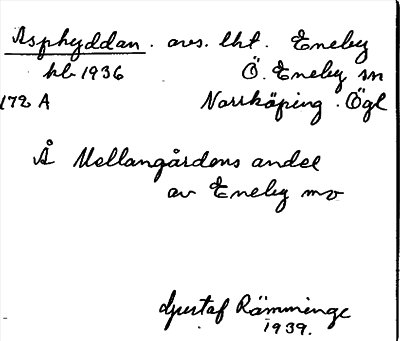 Asphyddan. avs. lht. Eneby
hb 1936 Ö. Eneby sn
172 A Norrköping. Ögl
Å Mellangårdens andel
av Eneby mo
Gustaf Rämminge
1939.